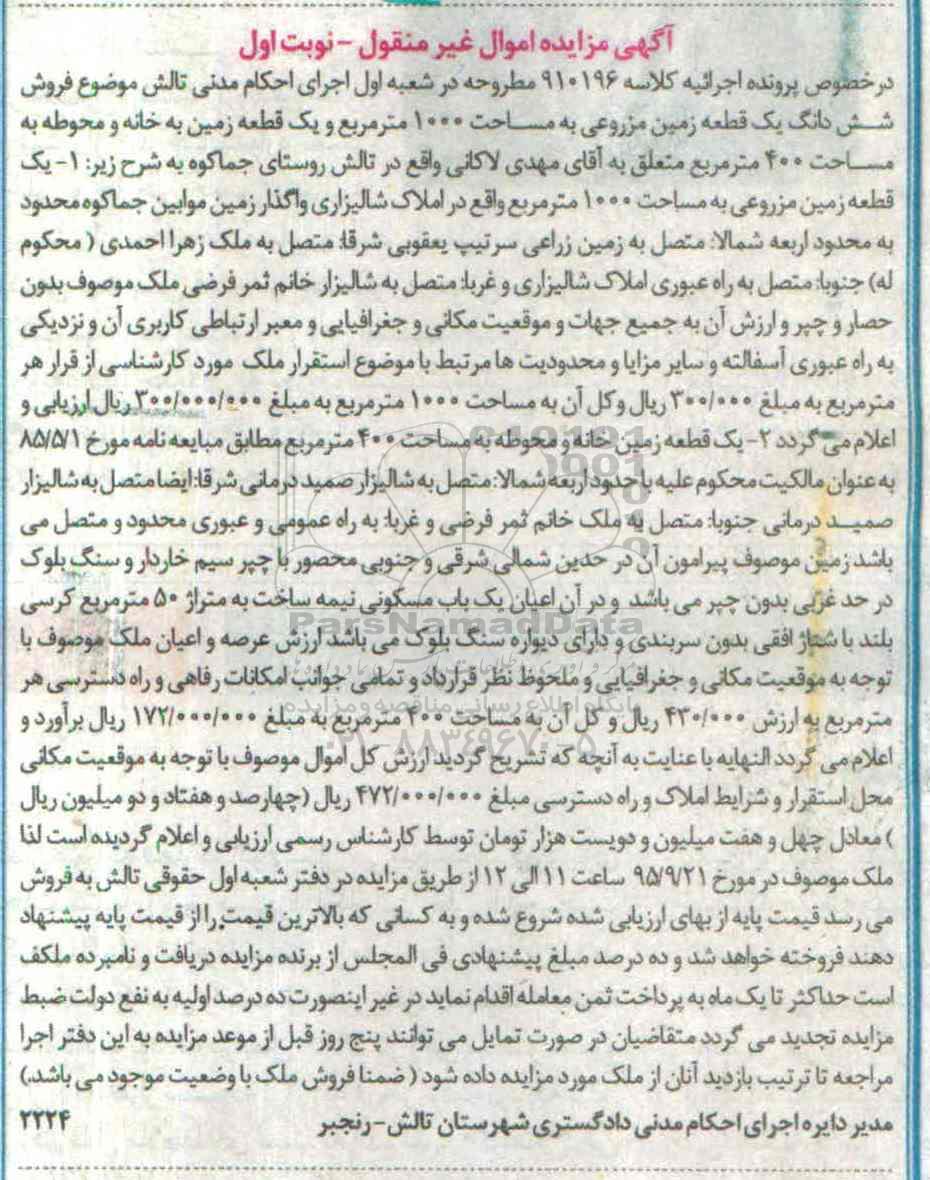 آگهی مزایده اموال غیر منقول - نوبت اول
درخصوص پرونده اجرائیه کلاسه ۹۱۰۱۹۶ مطروحه در شعبه اول اجرای احکام مدنی تالش موضوع فروش
شش دانگ یک قطعه زمین مزروعی به مساحت ۱۰۰۰ مترمربع و یک قطعه زمین به خانه و محوطه به
مساحت ۴۰۰ مترمربع متعلق به آقای مهدی لاکانی واقع در تالش روستای جماکوه به شرح زیر: ۱- یک
قطعه زمین مزروعی به مساحت ۱۰۰۰ مترمربع واقع در املاک شالیزاری واگذار زمین موابین جماکوه محدود
به محدود اربعه شمالا: متصل به زمین زراعی سرتیپ یعقوبی شرقا: متصل به ملک زهرا احمدی ( محکوم
له) جنوبا: متصل به راه عبوری املاک شالیزاری و غربا: متصل به شالیزار خانم ثمر فرضی ملک موصوف بدون
حصار و چپر و ارزش آن به جمیع جهات و موقعیت مکانی و جغرافیایی و معبر ارتباطی کاربری آن و نزدیکی
به راه عبوری آسفالته و سایر مزایا و محدودیت ها مرتبط با موضوع استقرار ملک مورد کارشناسی از قرار هر
مترمربع به مبلغ ۳۰۰/۰۰۰ ریال و کل آن به مساحت ۱۰۰۰ مترمربع به مبلغ ۳۰۰/۰۰۰/۰۰۰ ریال ارزیابی و
اعلام می گردد ۲- یک قطعه زمین خانه و محوطه به مساحت ۴۰۰ مترمربع مطابق مبایعه نامه مورخ ۸۵/۵/۱
به عنوان مالکیت محکوم علیه با حدود اربعه شمالا: متصل به شالیزار صمید درمانی شرقا: ایضا متصل به شالیزار
صمید درمانی جنوبا: متصل به ملک خانم ثمر فرضی و غربا: به راه عمومی و عبوری محدود و متصل می
باشد زمین موصوف پیرامون آن در حدین شمالی شرقی و جنوبی محصور با چپر سیم خاردار و سنگ بلوک
در حد غربی بدون چپر می باشد و در آن اعیان یک باب مسکونی نیمه ساخت به متراژ ۵۰ مترمربع کرسی
بلند با شناژ افقی بدون سربندی و دارای دیواره سنگ بلوک می باشد ارزش عرصه و اعیان ملک موصوف با
توجه به موقعیت مکانی و جغرافیایی و ملحوظ نظر قرارداد و تمامی جوانب امکانات رفاهی و راه دسترسی هر
مترمربع به ارزش ۴۳۰/۰۰۰ ریال و کل آن به مساحت ۴۰۰ مترمربع به مبلغ ۱۷۲/۰۰۰/۰۰۰ ریال برآورد و
اعلام می گردد النهایه با عنایت به آنچه که تشریح گردید ارزش کل اموال موصوف با توجه به موقعیت مکانی
محل استقرار و شرایط املاک و راه دسترسی مبلغ ۴۷۲/۰۰۰/۰۰۰ ریال (چهارصد و هفتاد و دو میلیون ریال
) معادل چهل و هفت میلیون و دویست هزار تومان توسط کارشناس رسمی ارزیابی و اعلام گردیده است لذا
ملک موصوف در مورخ ۹۵/۹/۲۱ ساعت ۱۱ الی ۱۲ از طریق مزایده در دفتر شعبه اول حقوقی تالش به فروش
می رسد قیمت پایه از بهای ارزیابی شده شروع شده و به کسانی که بالاترین قیمت را از قیمت پایه پیشنهاد
دهند فروخته خواهد شد و ده درصد مبلغ پیشنهادی فی المجلس از برنده مزایده دریافت و نامبرده ملکف
است حداکثر تا یک ماه به پرداخت ثمن معامله اقدام نماید در غیر اینصورت ده درصد اولیه به نفع دولت ضبط
مزایده تجدید می گردد متقاضیان در صورت تمایل می توانند پنج روز قبل از موعد مزایده به این دفتر اجرا
مراجعه تا ترتیب بازدید آنان از ملک مورد مزایده داده شود ( ضمنا فروش ملک با وضعیت موجود می باشد.)
مدیر دایره اجرای احکام مدنی دادگستری شهرستان تالش - رنجبر ۲۲۲۴
ParsNamadData
پایگاه اطلاع رسانی مناقصه و مزایده
۰۲۱-۸۸۳۴۹۶۷۰-۵